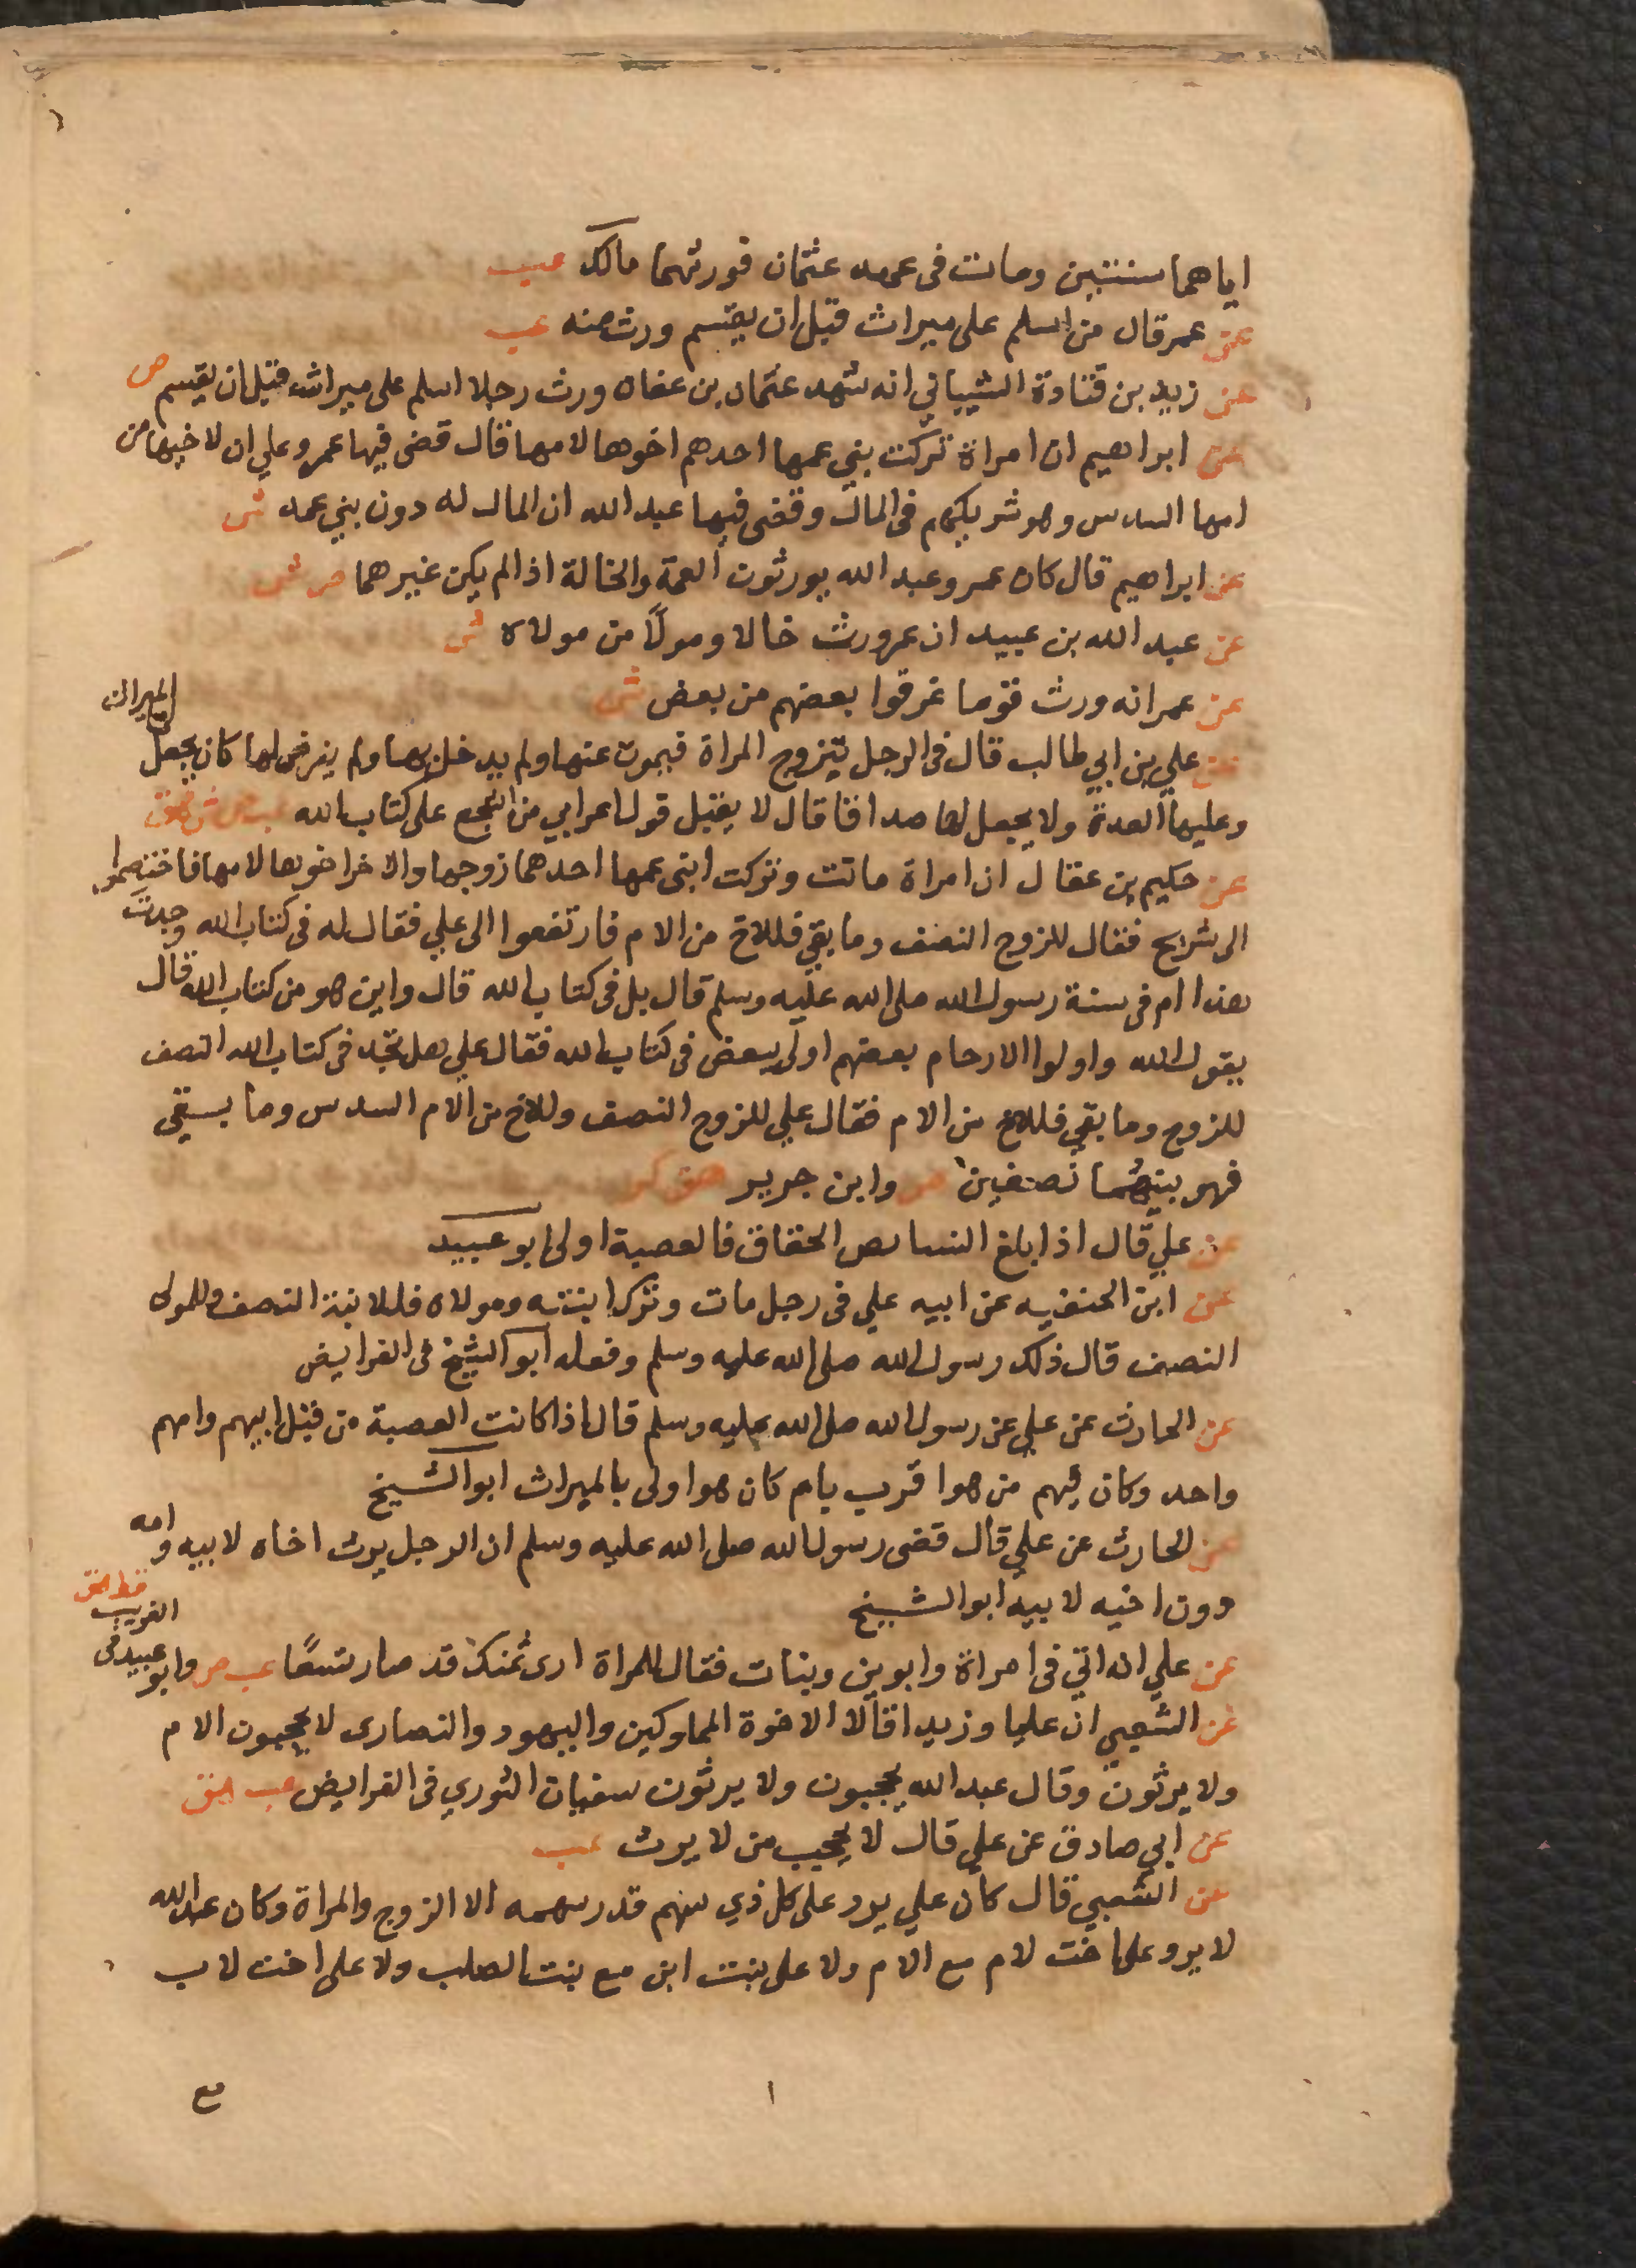 اياهما سنتين وماتت فى عهد عثمان فورثهما مالك عب
عن عمر قال من اسلم على ميراث قبل ان يقسم ورث منه عب
عن زيد بن قتادة الشيباني انه شهد عثمان بن عفان ورث رجلا اسلم على ميراث قبل ان يقسم ص
عن ابراهيم ان امراة تركت بني عمها احدهم اخوها لامها قال قضى فيها عمر وعلي ان لاخيها من
امها السدس وهو شريكهم فى المال وقضى فيها عبد الله ان المال له دون بني عمه ش
عن ابراهيم قال كان عمر وعبد الله يورثون العمة والخالة اذا لم يكن غيرهما ص ش
عن عبد الله بن عبيد ان عمر ورث خالا ومولًا من مولاه ش
عن عمر انه ورث قوما غرقوا بعضهم من بعض ش
عن علي بن ابي طالب قال فى الرجل يتزوج المراة فيموت عنها ولم يدخل بها ولم يفرض لها كان يجعل لها الميراث
وعليها العدة ولا يجعل لها صداقا قال لا يقبل قول اعرابي من اشجع على كتاب الله عب ص ش هق
عن حكيم بن عقال ان امراة ماتت وتركت ابنى عمها احدهما زوجها والاخر اخوها لامها فاختصموا
الى شريح فقال للزوج النصف وما بقي فللاخ من الام فارتفعوا الى علي فقال له فى كتاب الله وجدت
هذا ام فى سنة رسول الله صلى الله عليه وسلم قال بل فى كتاب الله قال واين هو من كتاب الله قال
يقول الله واولوا الارحام بعضهم اولى ببعض فى كتاب الله فقال علي هل تجد فى كتاب الله النصف
للزوج وما بقي فللاخ من الام فقال علي للزوج النصف وللاخ من الام السدس وما يبقى
فهو بينهما نصفين ص وابن جرير هق كر
عن علي قال اذا بلغ النسا نص الحقاق فالعصبة اولى ابو عبيد
عن ابن الحنفيه عن ابيه علي فى رجل مات وترك ابنته ومولاه فللابنة النصف وللمولى
النصف قال ذلك رسول الله صلى الله عليه وسلم وفعله ابو الشيخ فى الفرايض
عن الحارث عن علي عن رسول الله صلى الله عليه وسلم قال اذا كانت العصبة من قبل ابيهم وامهم
واحد وكان فيهم من هو اقرب بام كان هو اولى بالميراث ابو الشيخ
عن الحارث عن علي قال قضى رسول الله صلى الله عليه وسلم ان الرجل يرث اخاه لابيه وامه
دون اخيه لابيه ابو الشيخ
عن علي انه اتي فى امراة وابوين وبنات فقال للمراة ارى ثمنك قد صار تسعًا عب ص وابو عبيد فى الغريب قط هق
عن الشعبي ان عليا وزيدا قالا الاخوة المملوكين واليهود والنصارى لا يحجبون الام
ولا يرثون وقال عبد الله يحجبون ولا يرثون سفيان الثوري فى الفرايض عب هق
عن ابي صادق عن علي قال لا يحجب من لا يرث عب
عن الشعبي قال كان علي يرد على كل ذي سهم قدر سهمه الا الزوج والمراة وكان عبد الله
لا يرد على اخت لام مع الام ولا على بنت ابن مع بنت الصلب ولا على اخت لاب
مع